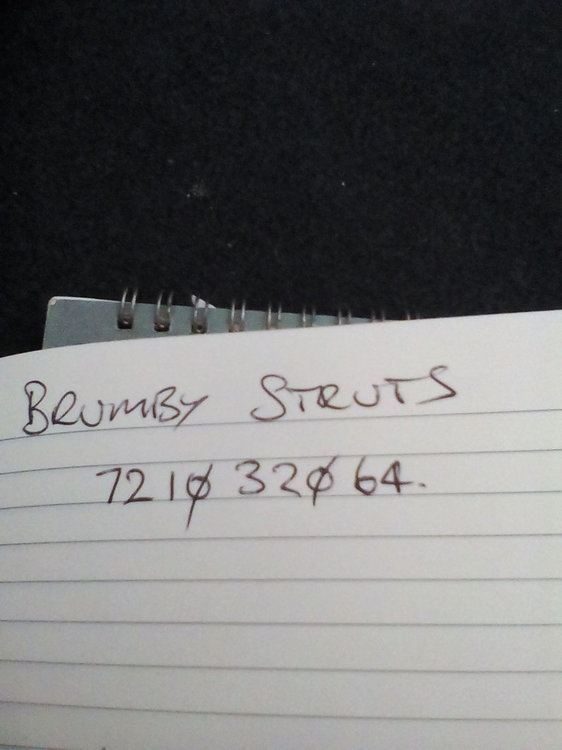 BRUMBY STRUTS
7210 320 64.